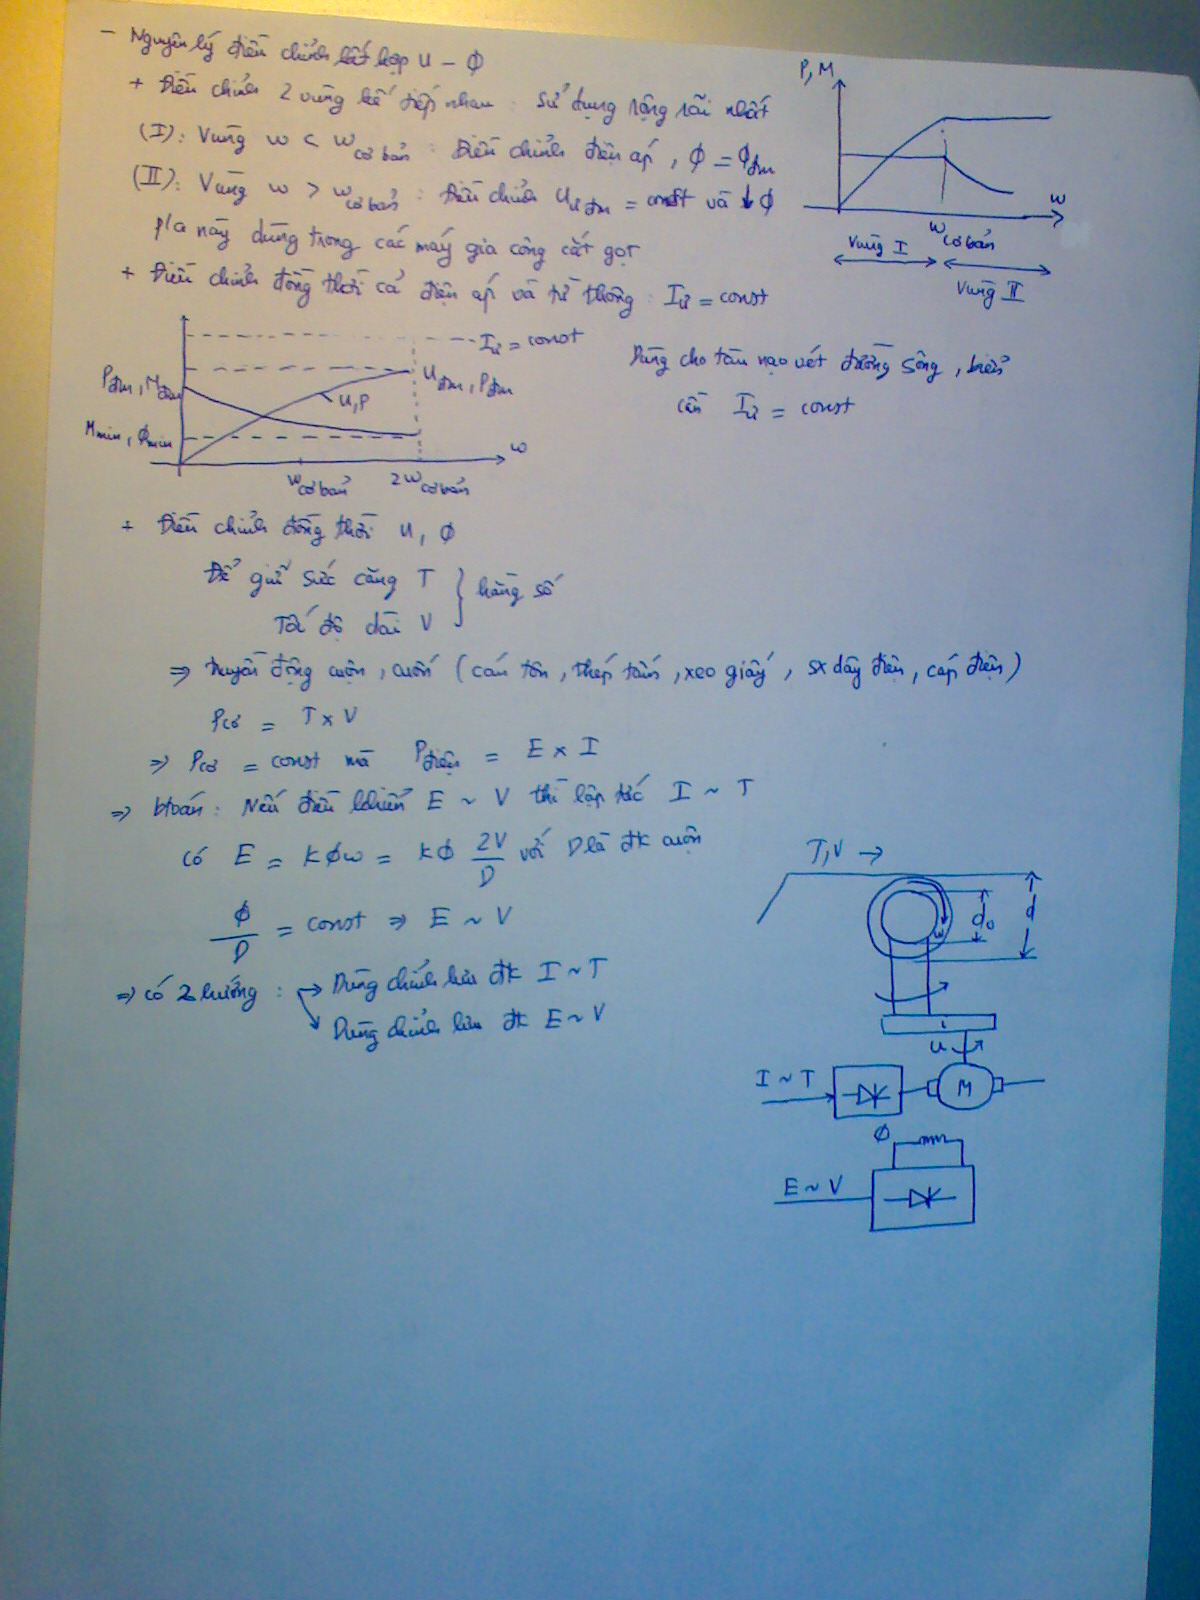 - Nguyên lý điều chỉnh kết hợp U - Φ
+ Điều chỉnh 2 vùng kế tiếp nhau : Sử dụng rộng rãi nhất
(I): Vùng ω < ω cơ bản : Điều chỉnh điện áp, Φ = Φđm
(II): Vùng ω > ω cơ bản : Điều chỉnh Uưđm = const và ↓Φ
p/a này dùng trong các máy gia công cắt gọt
P, M
ω
ω cơ bản
Vùng I
Vùng II
+ Điều chỉnh đồng thời cả điện áp và từ thông : Iư = const
Iư = const
Pđm, Mđm
Uđm, Pđm
U, P
Mmin, Φmin
ω
ω cơ bản
2ω cơ bản
Dùng cho tàu nạo vét đường sông, biển
cần Iư = const
+ Điều chỉnh đồng thời U, Φ
Để giữ sức căng T } hằng số
Tốc độ dài V
⇒ truyền động cuộn, cuốn (cán tôn, thép tấm, xeo giấy, sx dây điện, cáp điện)
Pcơ = T × V
⇒ Pcơ = const mà Pđiện = E × I
⇒ btoán : Nếu điều khiển E ~ V thì lập tức I ~ T
Có E = KΦω = KΦ 2V/D với D là đk cuộn
Φ/D = const ⇒ E ~ V
⇒ Có 2 hướng : → Dùng chỉnh lưu đk I ~ T
Dùng chỉnh lưu đk E ~ V
T, V →
d₀
d
ω
i
u
I ~ T
M
Φ
E ~ V